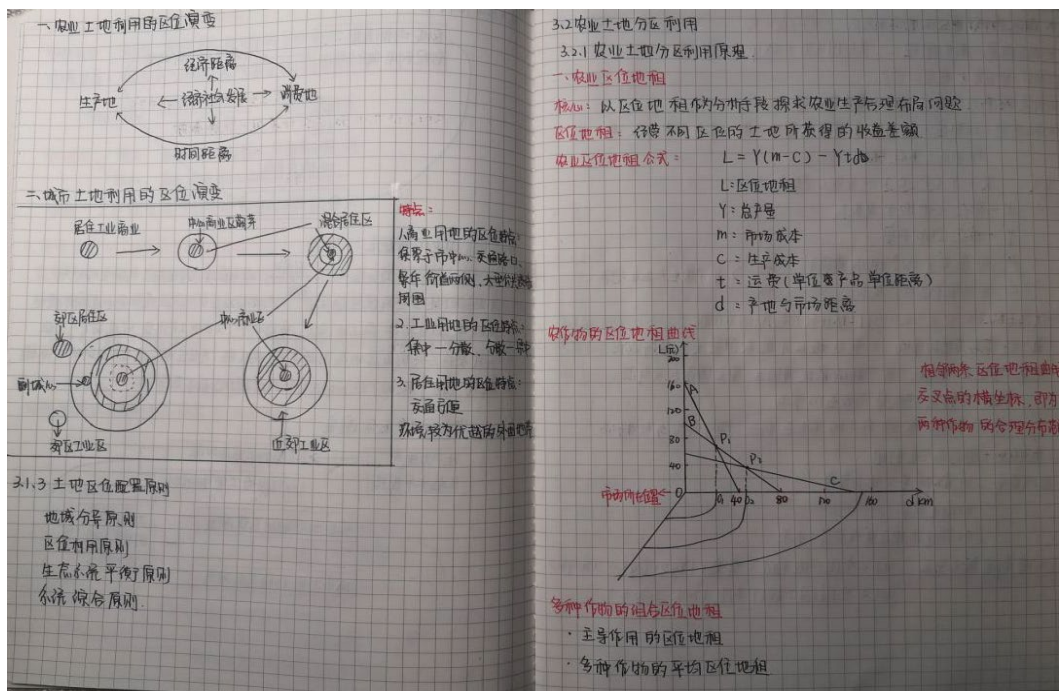 一、农业土地利用的区位演变
经济距离
生产地
经济社会发展
消费地
时间距离
二、城市土地利用的区位演变
居住工业商业
中心商业区
混合居住区
郊区居住区
中心商业区
副城心
郊区工业区
近郊工业区
特点:
1.商业用地的区位特点:
保罗于市中心、交通路口、
周围
2.工业用地的区位特点:
集中—分散、分散—集中
3.居住用地的区位特点:
交通方便
环境较为优越的外围地带
3.1.3 土地区位配置原则
地域分异原则
区位利用原则
生态系统平衡原则
系统综合原则.
3.2 农业土地分区利用
3.2.1 农业土地分区利用原理.
一、农业区位地租
核心: 以区位地租作为分析手段 探求农业生产合理布局问题
区位地租: 经营不同区位的土地所获得的收益差额
农业区位地租公式: L = Y(m-C) - Ytd
L:区位地租
Y: 总产量
m: 市场成本
C: 生产成本
t: 运费(单位重产品单位距离)
d: 产地与市场距离
农作物的区位地租曲线
L(元)
200
160
A
120
B
80
P₁
P₂
40
C
市场所在位置
0
40
80
120
160
d km
相邻两条区位地租曲
交叉点的横坐标,即为
两种作物的合理分布
多种作物的组合区位地租
· 主导作用的区位地租
· 多种作物的平均区位地租